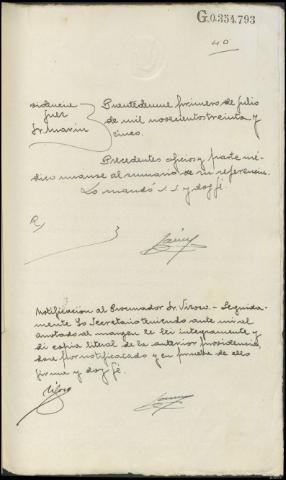 G.0.354.793
40
Providencia
Juez
Sr. Marin
Puentedeume primero de julio
de mil novecientos treinta y
cinco.
Precedentes oficios y parte mé-
dico unanse al sumario de su referencia.
Lo mandó S S y doy fé.
Notificacion al Procurador Sr. Vizoso - Seguida-
mente yo Secretario teniendo ante mi al
anotado al margen le lei integramente y
di copia literal de la anterior providencia,
dose por notificado y en prueba de ello
firma y doy fé.
Vizoso